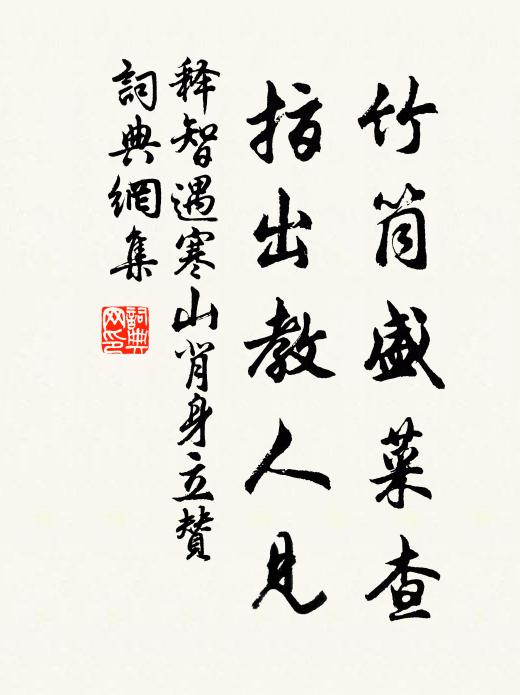 竹筒盛菜查
指出教人见
释智遇寒山肖身立赞
詞典網集
詞典网印